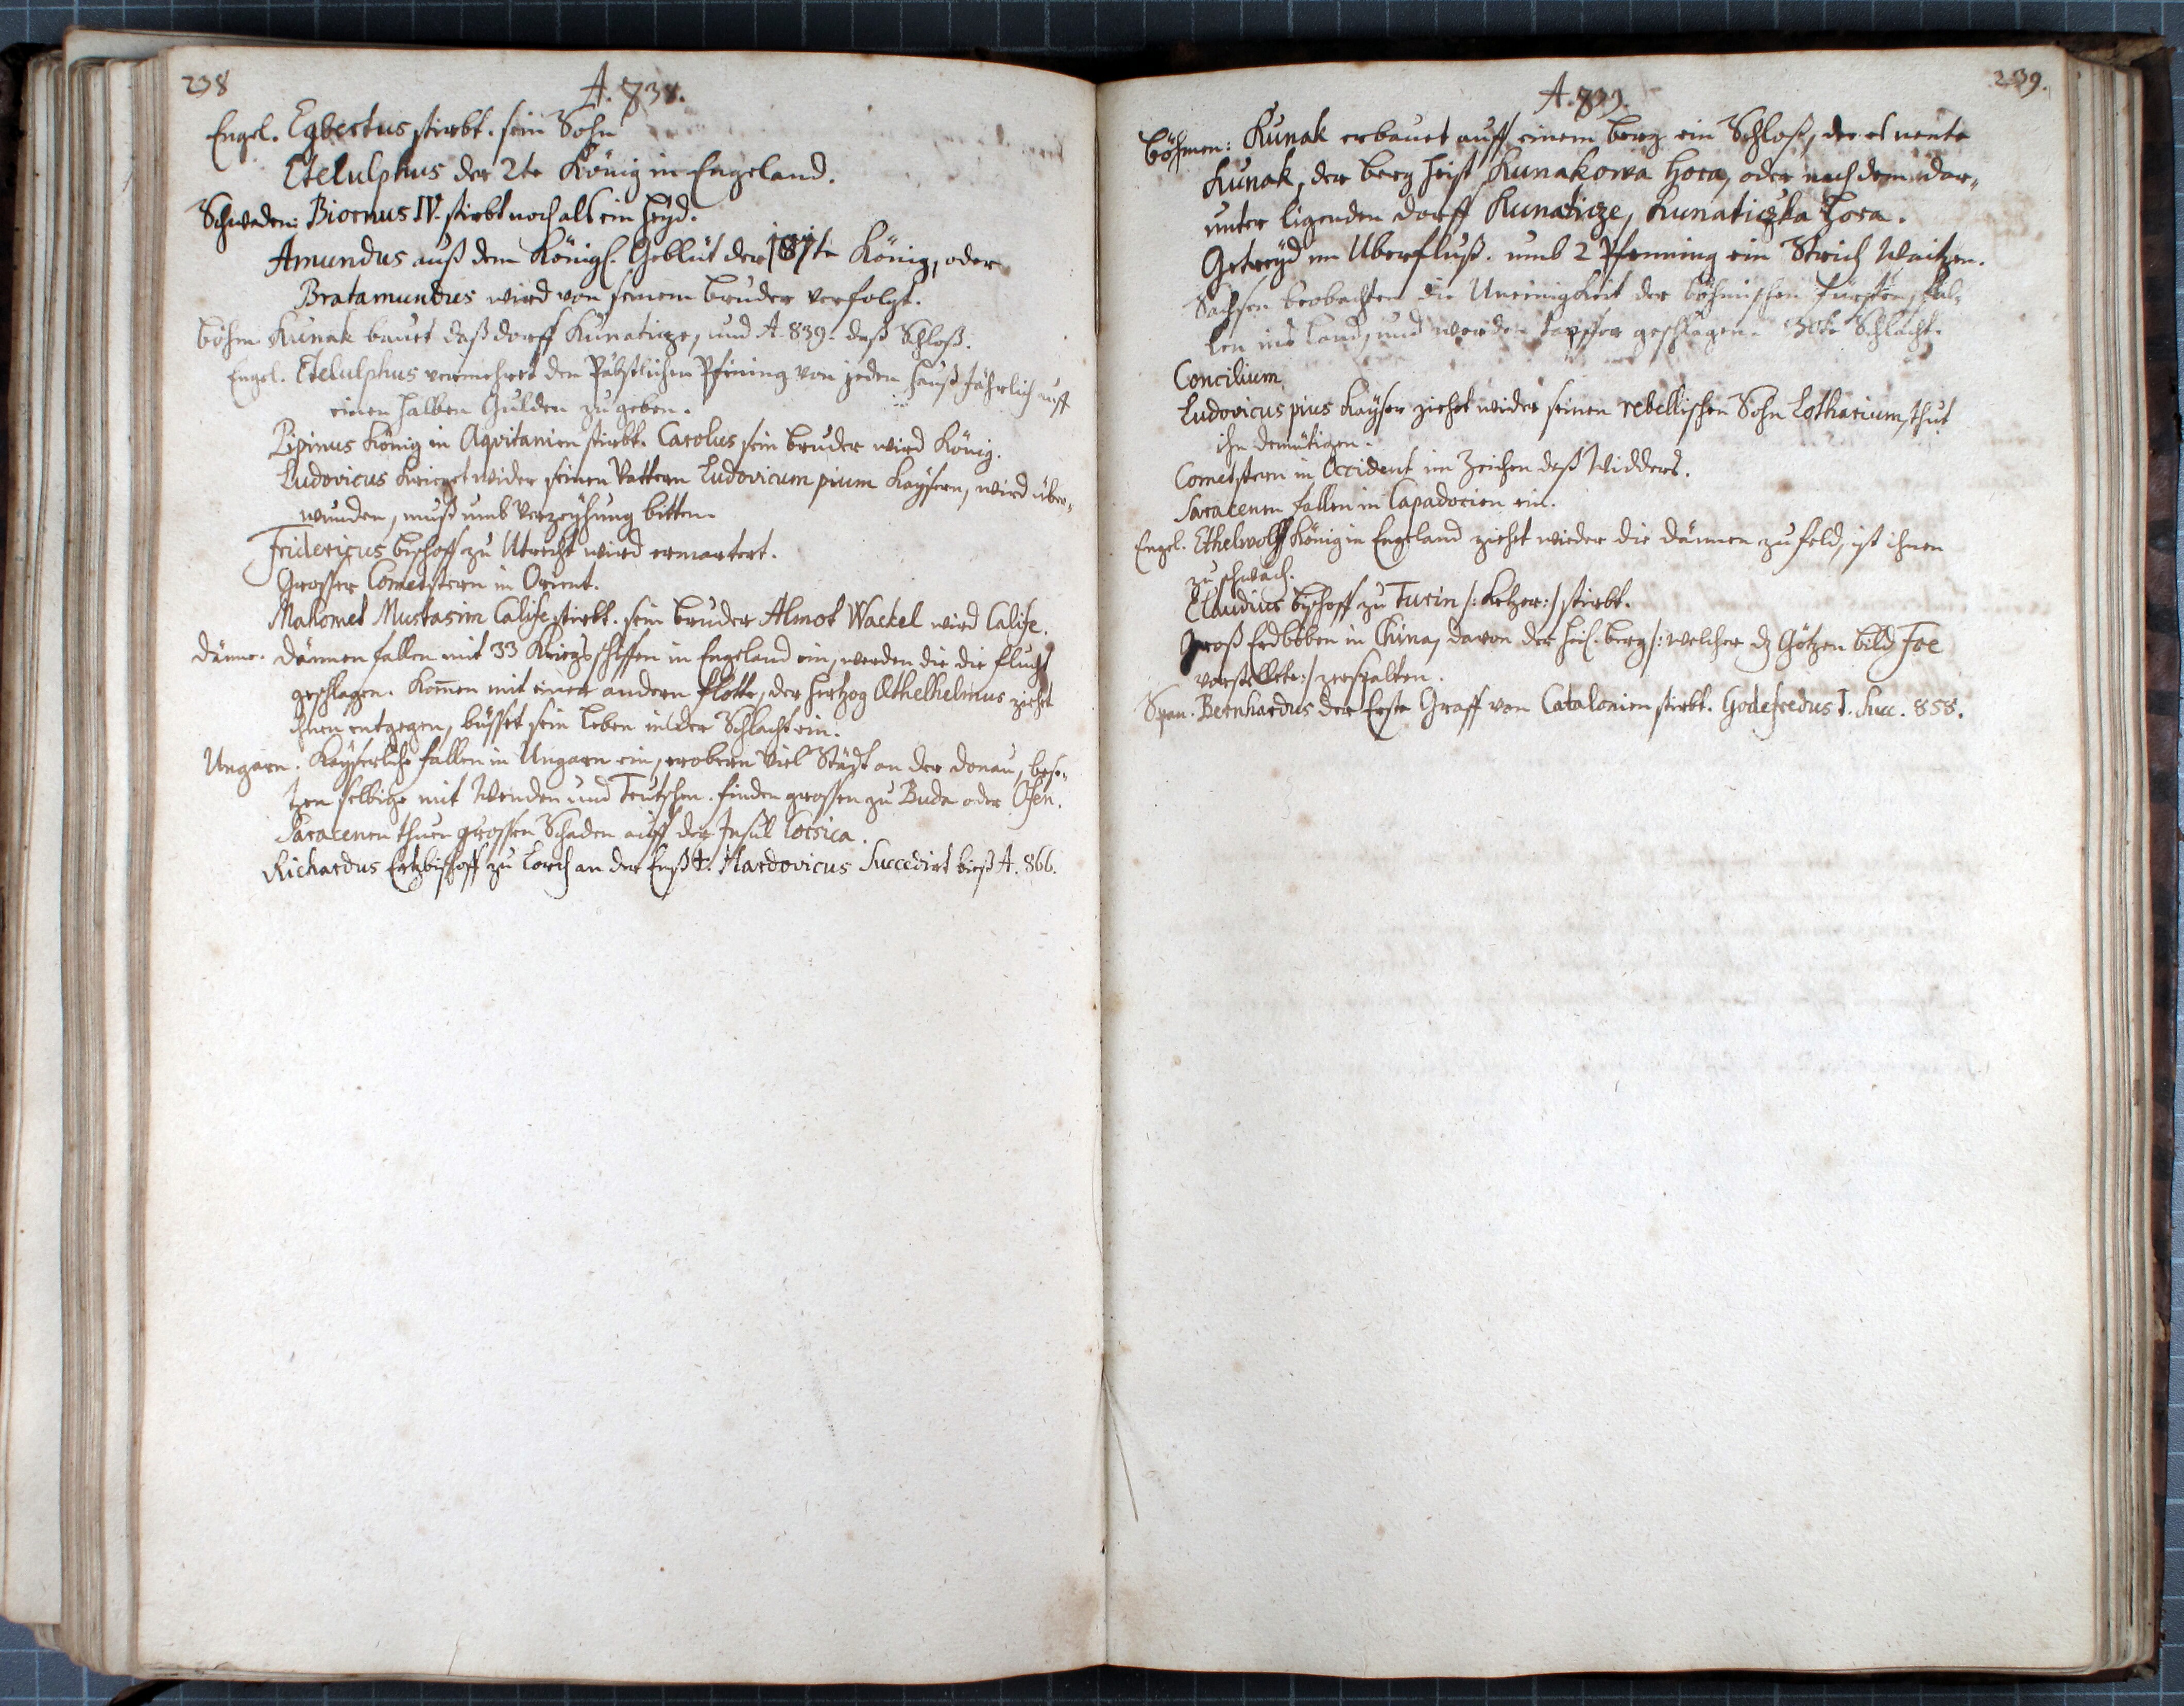 238
A. 838.
Engel. Egbertus stirbt. sein Sohn
Etelulphus der 2te König in Engeland.
Schweden: Biornus IV. stirbt noch alß ein Heyd.
Amundus auß dem Königl. Geblüt der König, oder
Bratamundus wird von seinem bruder verfolgt.
böhm. Kunak bauet daß dorff Kunaticze, und A. 839. daß Schloß.
Engel. Etelulphus vermehret den Päbstlichen Pfening von jeden Hauß Jährlich auff
einen halben Gulden zu geben.
Pipinus König in Aqvitanien stirbt. Carolus sein bruder wird König.
Ludovicus krieget wider seinen Vattern Ludovicum pium Kaysern, wird über-
wunden, muß umb Verzeyhung bitten.
Fridericus bischoff zu Utrecht wird ermartert.
Grosser Cometstern in Orient.
Mahomet Mustasim Calife stirbt. sein bruder Almot Wackel wird Calife.
Dänne. Dännen fallen mit 33 Kriegsschiffen in Engeland ein, werden die die flucht
geschlagen. Kom̄en mit einer andern flotte, der Hertzog Æthelhelmus ziehet
ihnen entgegen, büsset sein Leben in der Schlacht ein.
Ungarn. Kayserliche fallen in Ungarn ein, erobern viel Städt an der Donau, bese-
tzen selbige mit Wenden und Teutschen. finden grossen zu Buda oder Ofen.
Saracenen thuen grossen Schaden auff der Insul Corsica.
Richardus Ertzbischoff zu Lorch an der Enß †. Hardovicus Succedirt bieß A. 866.
239.
A. 839.
böhmen: Kunak erbauet auff einem berg ein Schloß, der es nente
Kunak, der berg heist Kunakowa Hora, oder nach dem dar-
unter ligenden dorff Kunaticze, Kunaticzka Hora.
Getreyd im Uberfluß. umb 2 Pfenning ein Strich Waitzen.
Sachsen beobachten die Uneinigkeit der böhmischen Fürsten, fal-
len ins Land, und werden tapffer geschlagen. 30te Schlacht.
Concilium
Ludovicus pius Kayser ziehet wider seinen rebellischen Sohn Lotharium, thut
ihn demütigen.
Cometstern in Occident im Zeichen deß Widders.
Saracenen fallen in Capadocien ein.
Engel. Ethelwolff König in Engeland ziehet wieder die Dännen zu feld, ist ihnen
zu schwach.
Claudius bischoff zu Turin /: Ketzer :/ stirbt.
Groß Erdböben in China, davon der heil. berg /: welcher dz Götzen bild Foe
vorstellete :/ zerspalten.
Span. Bernhardus der Erste Graff von Catalonien stirbt. Godefredus I. Succ. 858.